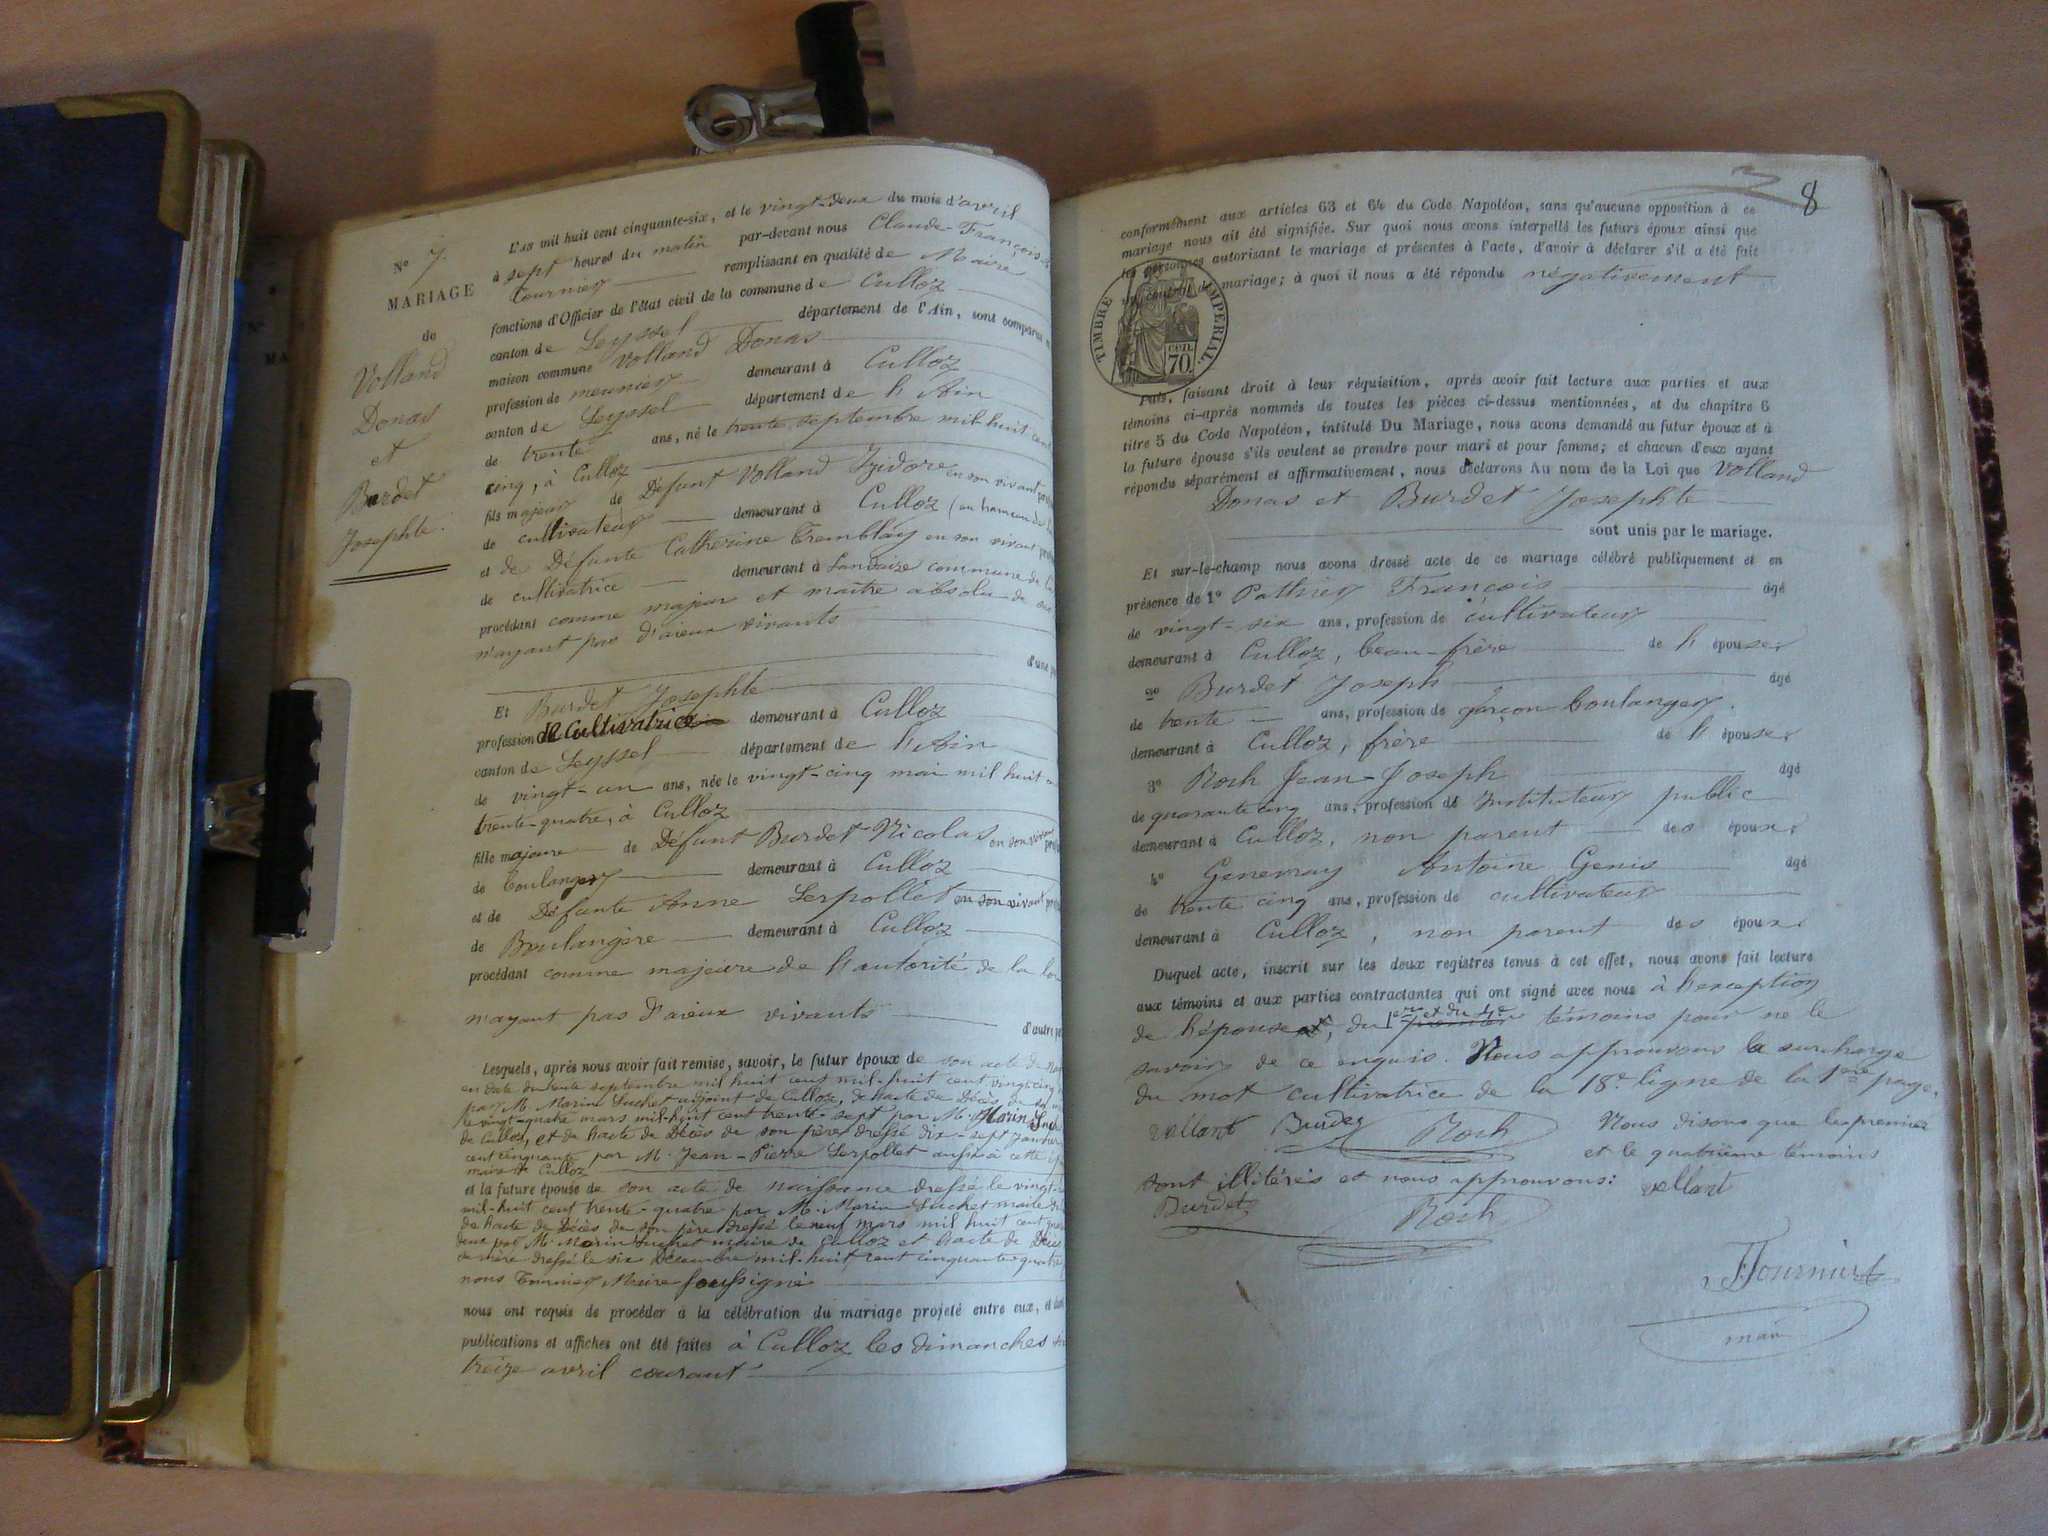 No 7.
MARIAGE
de
Volland
Donas
et
Burdet
Josephte.
L'an mil huit cent cinquante-six, et le vingt-deux du mois d'avril
à sept heures du matin par-devant nous Claude-François
Tournier remplissant en qualité de Maire
fonctions d'Officier de l'état civil de la commune de Culloz
canton de Seyssel département de l'Ain, sont comparus
maison commune Volland Donas
profession de meunier demeurant à Culloz
canton de Seyssel département de l'Ain
de trente ans, né le trente septembre mil-huit cent
cinq, à Culloz
fils majeur de Défunt Volland Izidore en son vivant
de cultivateur demeurant à Culloz (au hameau de
et de Défunte Catherine Tremblay en son vivant
de cultivatrice demeurant à Landaize commune de
procédant comme majeur et maître absolu de ses
n'ayant pas d'aïeux vivants
d'une
Et Burdet Josephte
profession de Cultivatrice demeurant à Culloz
canton de Seyssel département de l'Ain
de vingt-un ans, née le vingt-cinq mai mil huit
trente-quatre, à Culloz
fille majeure de Défunt Burdet Nicolas en son vivant
de boulanger demeurant à Culloz
et de Défunte Anne Serpollet en son vivant
de Boulangère demeurant à Culloz
procédant comme majeure de l'autorité de la loi
n'ayant pas d'aïeux vivants d'autre
Lesquels, après nous avoir fait remise, savoir, le futur époux de son acte de
en date du trente septembre mil huit cent mil-huit cent vingt-cinq
par M. Marin Suchet adjoint de Culloz, de l'acte de Décès de
le vingt-quatre mars mil-huit cent trente-sept par M. Marin
de Culloz, et de l'acte de Décès de son père dressé dix-sept Janvier
cent cinquante par M. Jean-Pierre Serpollet aussi à cette
maire de Culloz
et la future épouse de son acte de naissance dressé le vingt-
mil-huit cent trente-quatre par M. Marin Suchet maire
de l'acte de Décès de son père dressé le neuf mars mil huit cent
deux par M. Marin Suchet maire de Culloz et l'acte de Décès
sa mère dressé le six Décembre mil-huit cent cinquante-quatre
nous Tournier Maire soussigné
nous ont requis de procéder à la célébration du mariage projeté entre eux, et dont
publications et affiches ont été faites à Culloz les dimanches
treize avril courant
8
conformément aux articles 63 et 64 du Code Napoléon, sans qu'aucune opposition à ce
mariage nous ait été signifiée. Sur quoi nous avons interpellé les futurs époux ainsi que
les personnes autorisant le mariage et présentes à l'acte, d'avoir à déclarer s'il a été fait
un contrat de mariage; à quoi il nous a été répondu négativement
TIMBRE IMPERIAL.
CEN.
70.
Puis, faisant droit à leur réquisition, après avoir fait lecture aux parties et aux
témoins ci-après nommés de toutes les pièces ci-dessus mentionnées, et du chapitre 6
titre 5 du Code Napoléon, intitulé Du Mariage, nous avons demandé au futur époux et à
la future épouse s'ils veulent se prendre pour mari et pour femme; et chacun d'eux ayant
répondu séparément et affirmativement, nous déclarons Au nom de la Loi que Volland
Donas et Burdet Josephte
sont unis par le mariage.
Et sur-le-champ nous avons dressé acte de ce mariage célébré publiquement et en
présence de 1o Pathier François âgé
de vingt-six ans, profession de cultivateur
demeurant à Culloz, beau-frère de l'épouse,
2o Burdet Joseph âgé
de trente ans, profession de garçon boulanger.
demeurant à Culloz, frère de l'épouse,
3o Roch Jean-Joseph âgé
de quarante cinq ans, profession de Instituteur public
demeurant à Culloz, non parent des époux,
4o Genevray Antoine Genis âgé
de trente cinq ans, profession de cultivateur
demeurant à Culloz, non parent des époux.
Duquel acte, inscrit sur les deux registres tenus à cet effet, nous avons fait lecture
aux témoins et aux parties contractantes qui ont signé avec nous à l'exception
de l'épouse et, du 1er et du 4e premier témoins pour ne le
savoir de ce enquis. Nous approuvons la surcharge
du mot cultivatrice de la 18e ligne de la 1ère page,
vollant Burdet Roch Nous disons que les premier
et le quatrième témoins
sont illitérés et nous approuvons: vollant
Burdet Roch
F Tournier
maire